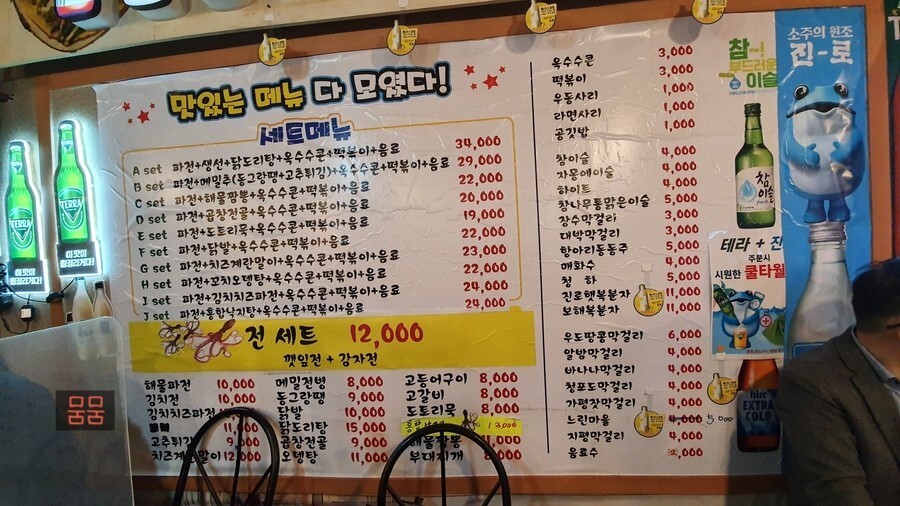 맛있는 메뉴 다 모였다!
세트메뉴
A set 파전+생선+닭도리탕+옥수수콘+떡볶이+음료 34,000
B set 파전+메밀추(동그랑땡+고추튀김)+옥수수콘+떡볶이+음료 29,000
C set 파전+해물짬뽕+옥수수콘+떡볶이+음료 22,000
D set 파전+곱창전골+옥수수콘+떡볶이+음료 20,000
E set 파전+도토리묵+옥수수콘+떡볶이+음료 19,000
F set 파전+닭발+옥수수콘+떡볶이+음료 22,000
G set 파전+치즈계란말이+옥수수콘+떡볶이+음료 23,000
H set 파전+꼬치오뎅탕+옥수수콘+떡볶이+음료 22,000
I set 파전+김치치즈파전+옥수수콘+떡볶이+음료 24,000
J set 파전+홍합낙지탕+옥수수콘+떡볶이+음료 24,000
전 세트 12,000
깻잎전 + 감자전
해물파전 10,000
김치전 10,000
김치치즈파전
고추튀김
치즈계란말이 12,000
메밀전병 8,000
동그랑땡 9,000
닭발 10,000
닭도리탕 15,000
곱창전골 9,000
오뎅탕 11,000
고등어구이 8,000
고갈비 8,000
도토리묵 8,000
13000
해물짬뽕
부대찌개 8,000
옥수수콘 3,000
떡볶이 3,000
우동사리 1,000
라면사리 1,000
공깃밥 1,000
참이슬 4,000
자몽에이슬 4,000
하이트 4,000
참나무통맑은이슬 5,000
장수막걸리 3,000
대박막걸리 3,000
항아리동동주 5,000
매화수 4,000
청하 5,000
진로행복분자 11,000
보해복분자 11,000
우도땅콩막걸리 6,000
알밤막걸리 4,000
바나나막걸리 4,000
청포도막걸리 4,000
가평잣막걸리 4,000
느린마을 4,000 5000
지평막걸리 4,000
음료수 2,000
참~!
부드러운
이슬
참이슬
fresh
소주의 원조
진-로
테라 + 진
주문시
시원한 쿨타월
EXTRA
COLD
TERRA
이 맛이
청정라거다!
TERRA
이 맛이
청정라거다!
뭄뭄